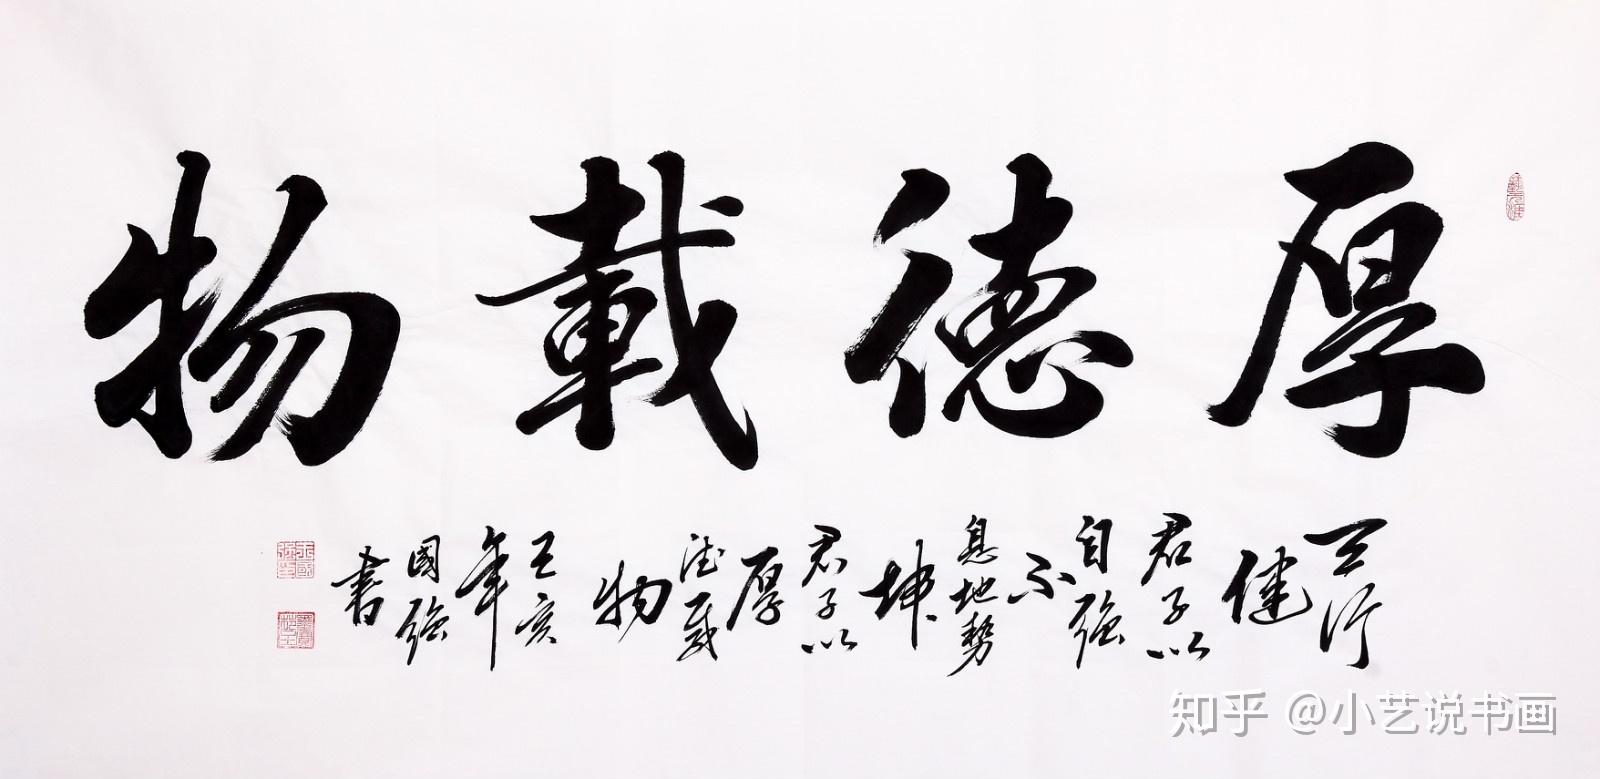 厚德載物
天行
健
君子以
自强
不
息地勢
坤
君子以
厚
德載
物
己亥
年
國强
書
知乎 @小艺说书画